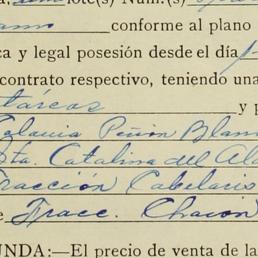 lote(s) Núm.(s)
conforme al plano
ca y legal posesión desde el día
contrato respectivo, teniendo una
táreas y p
Colonia Peñon Blan
Sta. Catalina del Al
Fracción Cabelaris
e Fracc. Chacón
UNDA:—El precio de venta de la